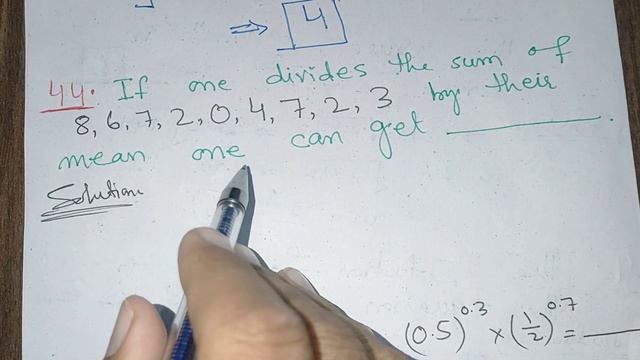 ⇒ 4
44. If one divides the sum of
8, 6, 7, 2, 0, 4, 7, 2, 3 by their
mean one can get ________.
Solution:
(0.5)^0.3 × (1/2)^0.7 = ____